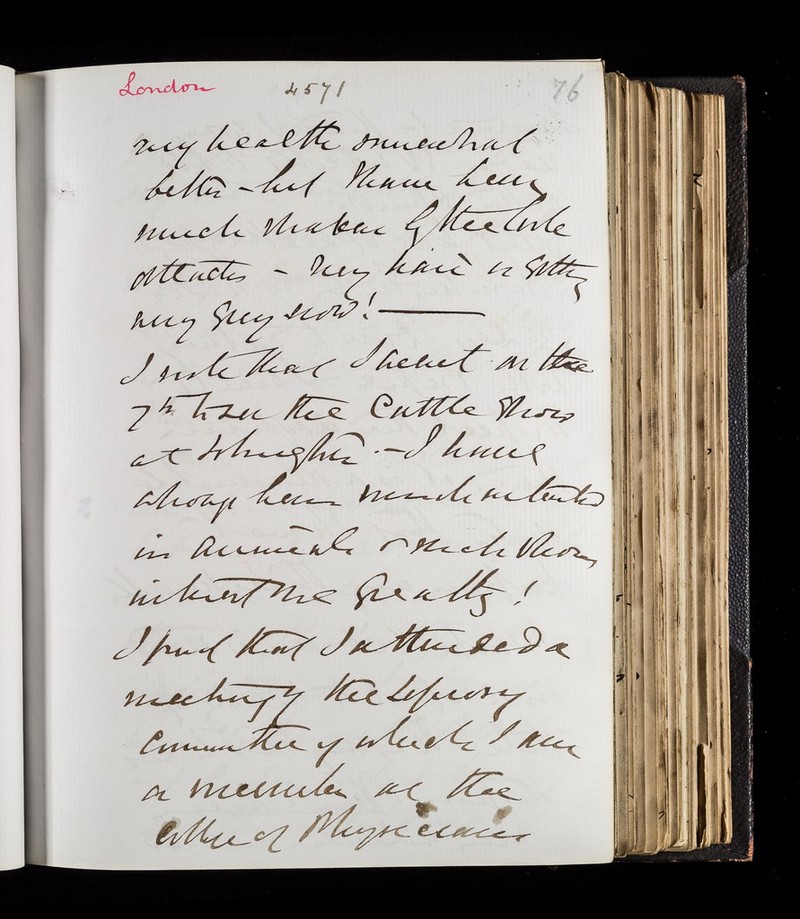 London 4571 76
my health somewhat
better - but I have been
much shaken by the late
attacks - my hair is getting
very grey now! —
I note that I went on the
7th to see the Cattle Show
at - I have
always been much interested
in animals & such shows
interest me greatly!
I find that I attended a
meeting of the Leprosy
Committee of which I am
a member at the
College of Physicians